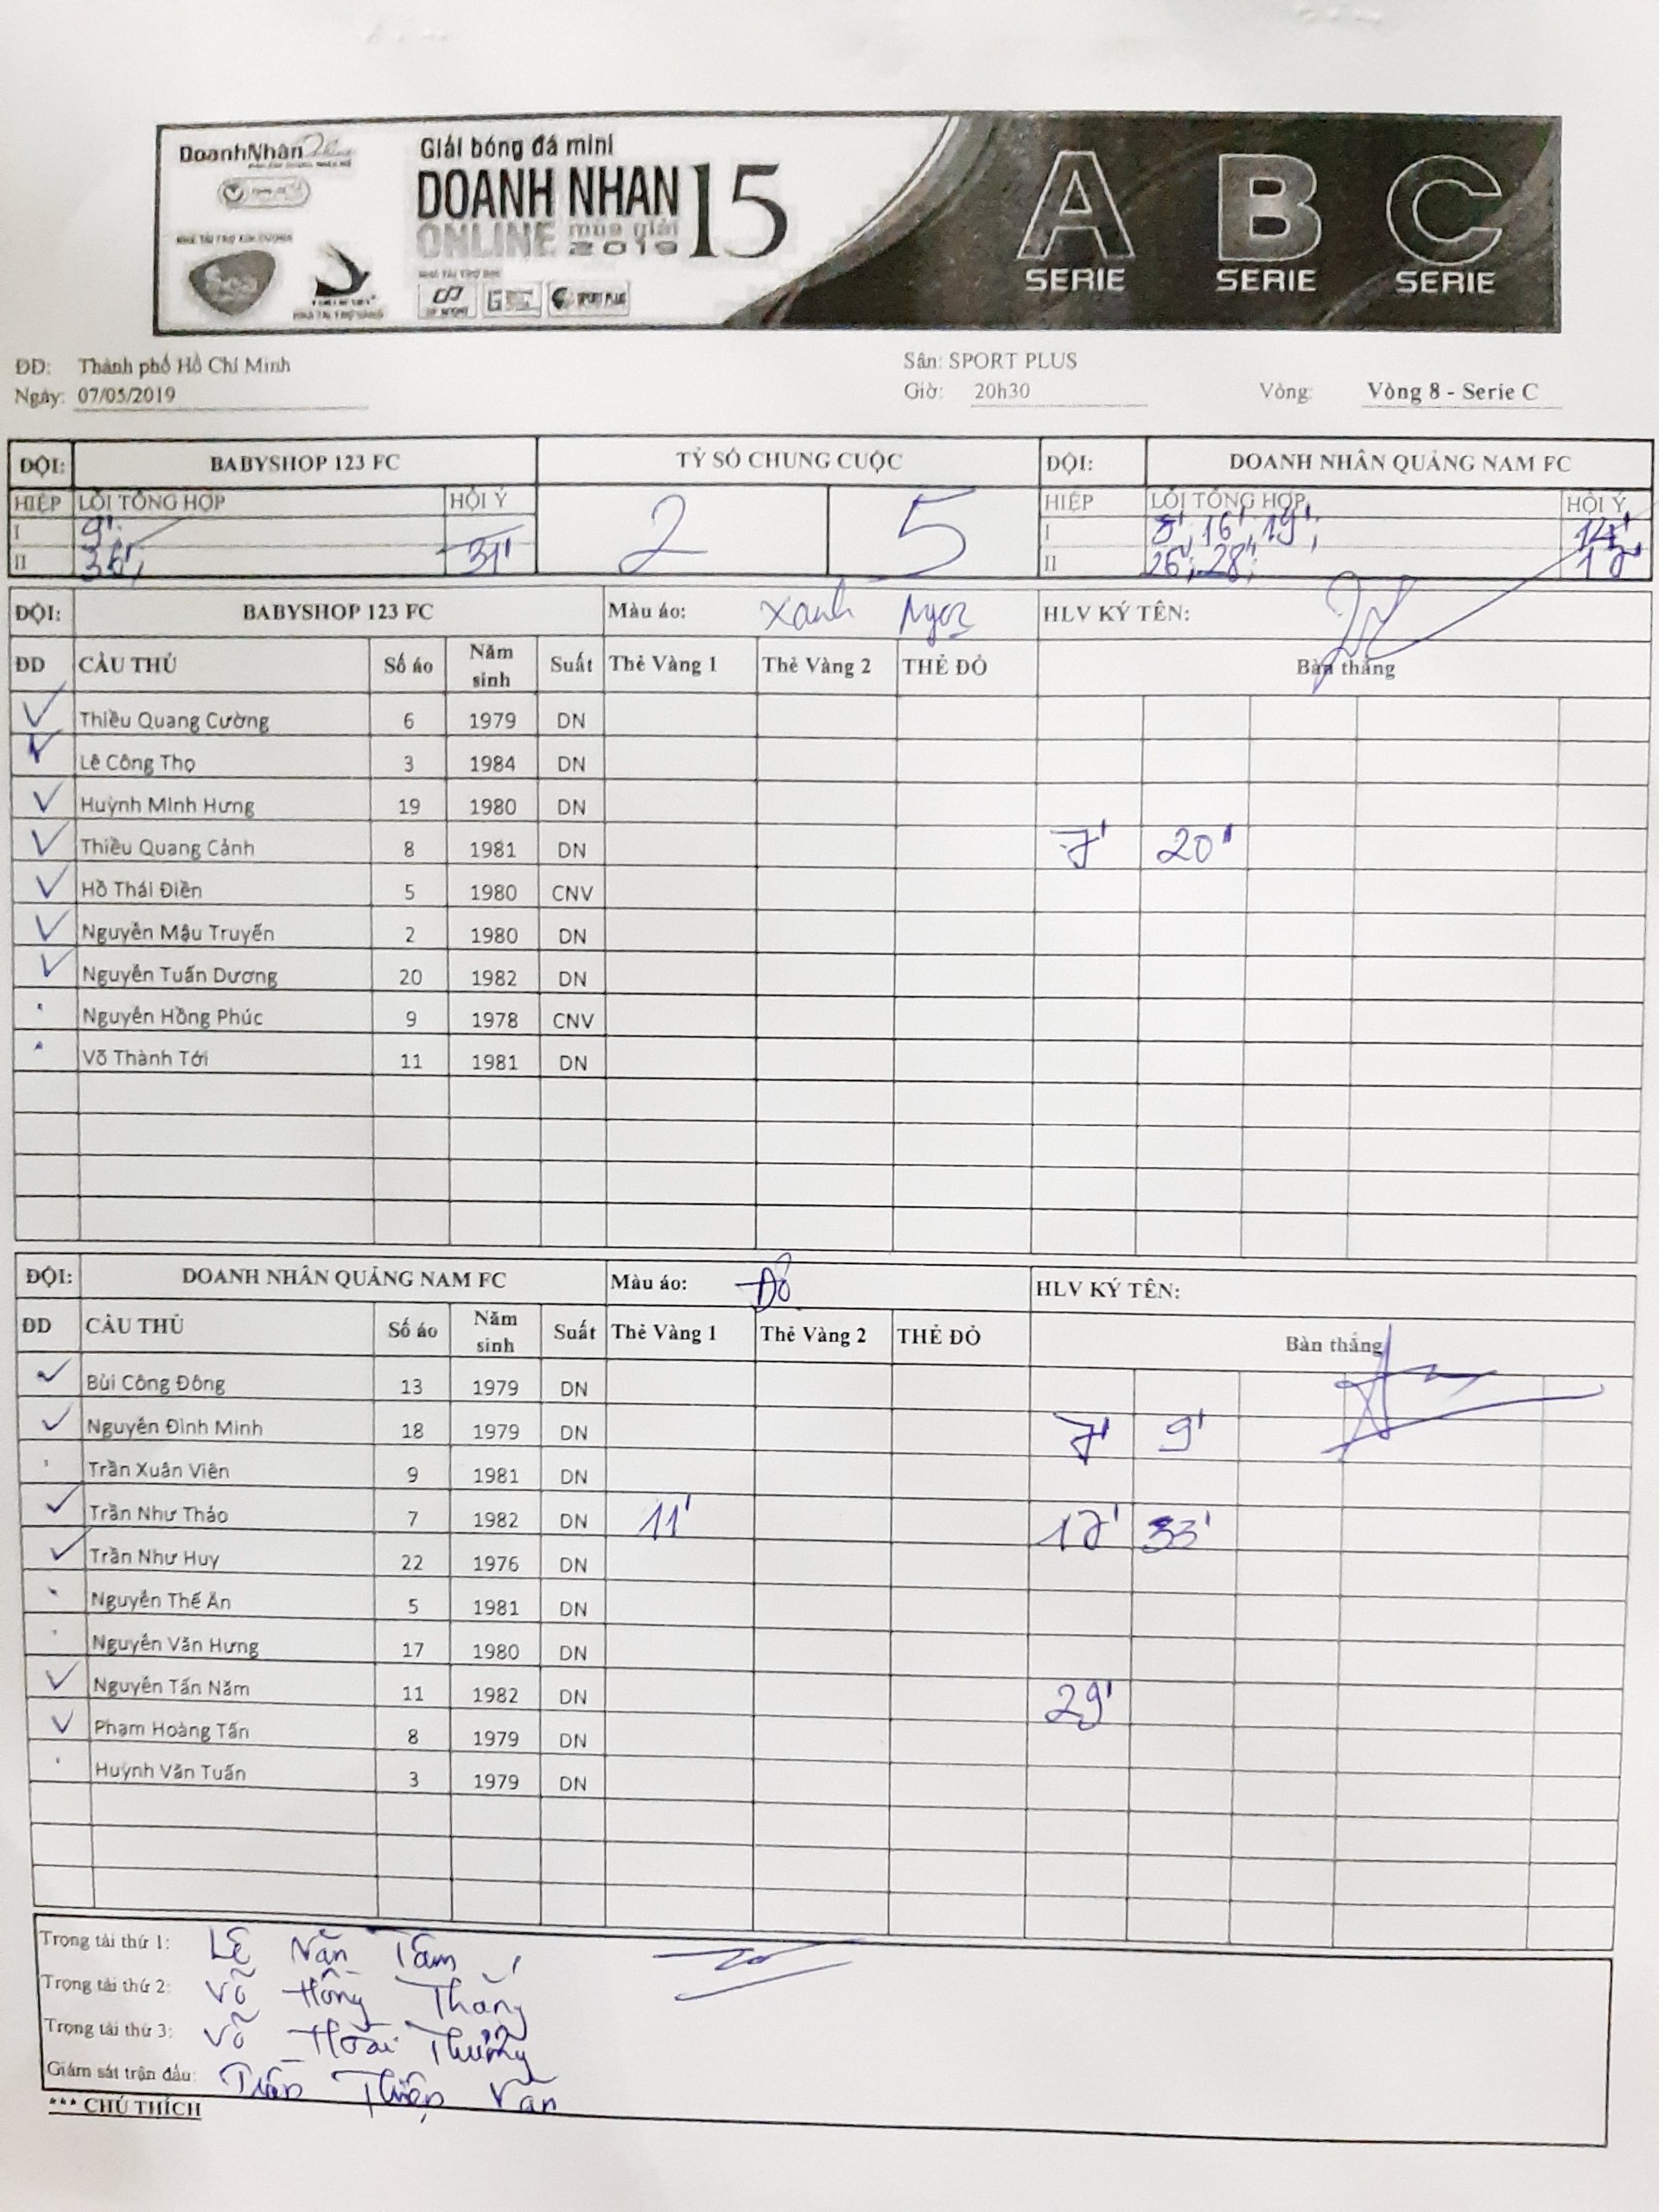 DoanhNhân
Giải bóng đá mini
DOANH NHAN 15
ONLINE mùa giải 2019
A B C
SERIE SERIE SERIE
SPORT PLUS
ĐD: Thành phố Hồ Chí Minh Sân: SPORT PLUS
Ngày: 07/05/2019 Giờ: 20h30 Vòng: Vòng 8 - Serie C
ĐỘI: BABYSHOP 123 FC TỶ SỐ CHUNG CUỘC ĐỘI: DOANH NHÂN QUẢNG NAM FC
HIỆP LỖI TỔNG HỢP HỘI Ý 2 5 HIỆP LỖI TỔNG HỢP HỘI Ý
I 9'; I 16'; 19';
II 36'; 31' II 26'; 28'; 17'
ĐỘI: BABYSHOP 123 FC Màu áo: Xanh Ngọc HLV KÝ TÊN:
ĐD CẦU THỦ Số áo Năm sinh Suất Thẻ Vàng 1 Thẻ Vàng 2 THẺ ĐỎ Bàn thắng
Thiều Quang Cường 6 1979 DN
Lê Công Thọ 3 1984 DN
Huỳnh Minh Hưng 19 1980 DN
Thiều Quang Cảnh 8 1981 DN 7' 20'
Hồ Thái Điền 5 1980 CNV
Nguyễn Mậu Truyến 2 1980 DN
Nguyễn Tuấn Dương 20 1982 DN
Nguyễn Hồng Phúc 9 1978 CNV
Võ Thành Tới 11 1981 DN
ĐỘI: DOANH NHÂN QUẢNG NAM FC Màu áo: Đỏ HLV KÝ TÊN:
ĐD CẦU THỦ Số áo Năm sinh Suất Thẻ Vàng 1 Thẻ Vàng 2 THẺ ĐỎ Bàn thắng
Bùi Công Đông 13 1979 DN
Nguyễn Đình Minh 18 1979 DN 7' 9'
Trần Xuân Viên 9 1981 DN
Trần Như Thảo 7 1982 DN 11' 17' 33'
Trần Như Huy 22 1976 DN
Nguyễn Thế Ân 5 1981 DN
Nguyễn Văn Hưng 17 1980 DN
Nguyễn Tấn Năm 11 1982 DN 29'
Phạm Hoàng Tấn 8 1979 DN
Huỳnh Văn Tuấn 3 1979 DN
Trọng tài thứ 1: Lê Văn Tâm
Trọng tài thứ 2: Võ Hồng Thắng
Trọng tài thứ 3: Võ Hoài Thưởng
Giám sát trận đấu: Trần Thiệp Văn
*** CHÚ THÍCH